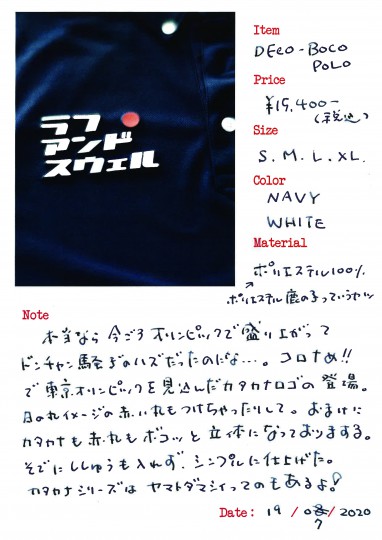 ラフ
アンド
スウェル
Item
DECO-BOCO
POLO
Price
¥15,400-
(税込)
Size
S. M. L. XL.
Color
NAVY
WHITE
Material
ポリエステル100%
ポリエステル鹿の子っていうヤツ
Note
本当なら今ごろオリンピックで盛り上がって
ドンチャン騒ぎのハズだったのにな…。コロナめ!!
で東京オリンピックを見込んだカタカナロゴの登場。
日の丸イメージの赤い丸もつけちゃったりして。おまけに
カタカナも赤丸もボコッと立体になっておりまする。
そでにししゅうも入れず、シンプルに仕上げた。
カタカナシリーズはヤマトダマシイってのもあるよ!
Date: 19 / 08 / 2020
7